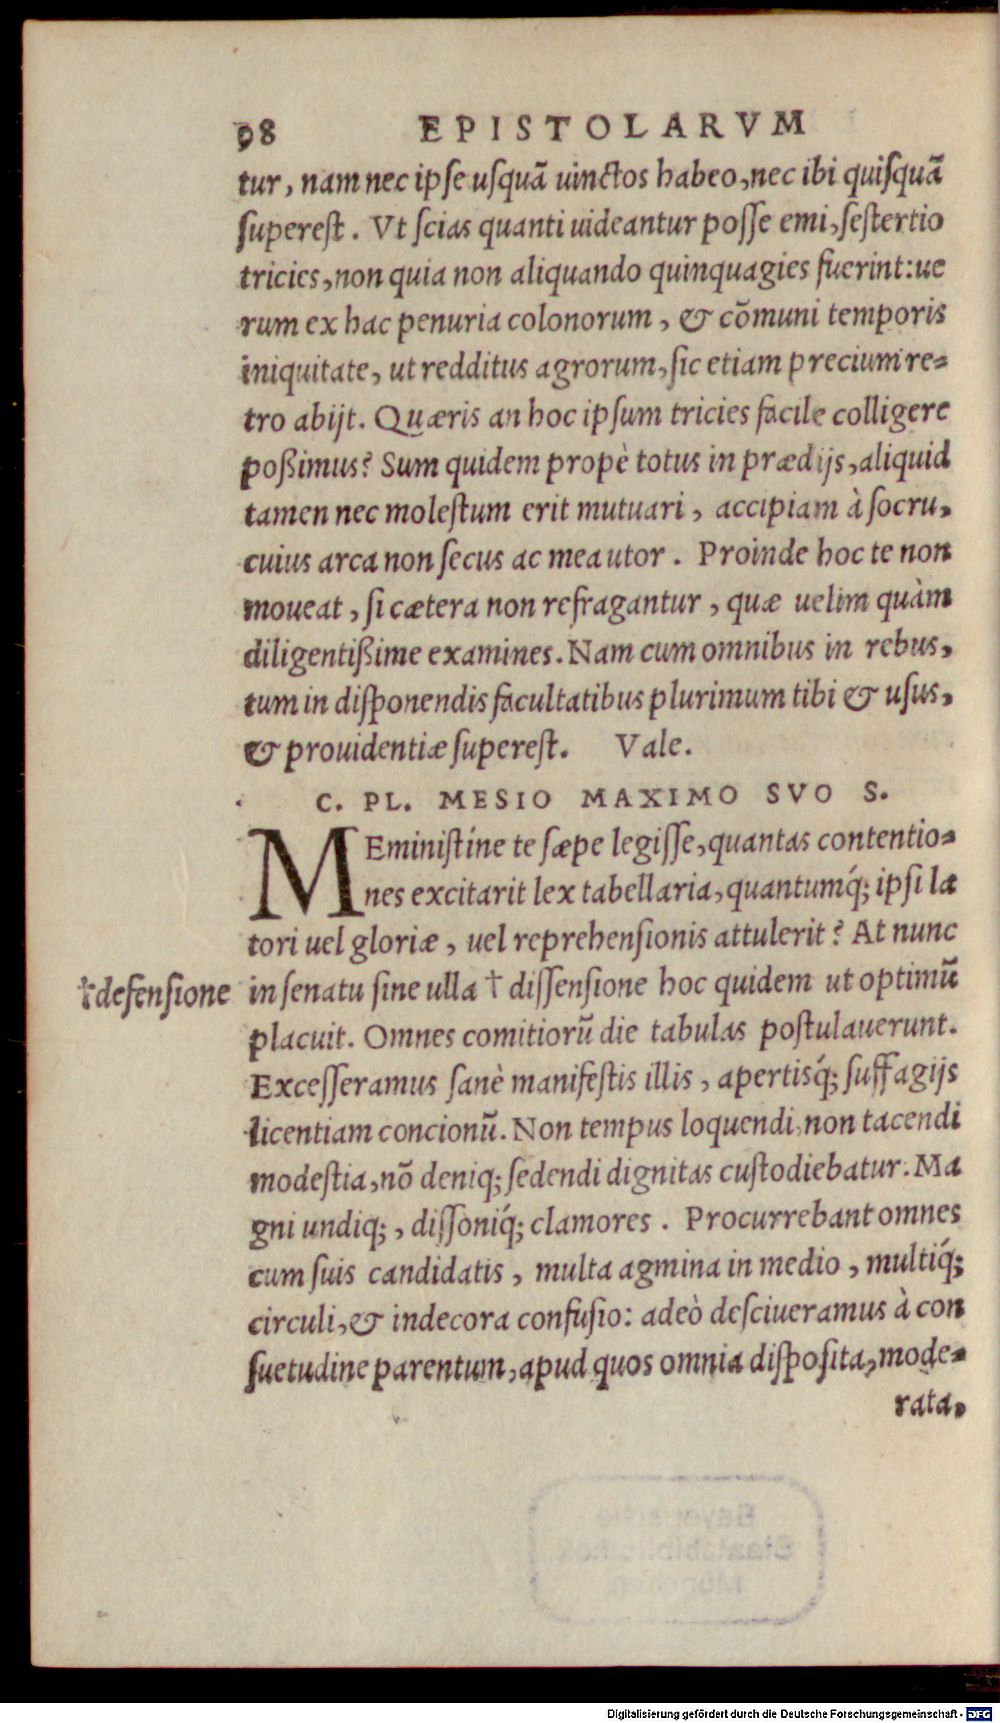 98 EPISTOLARVM
tur, nam nec ipſe uſquā uinctos habeo, nec ibi quiſquā
ſupereſt. Vt ſcias quanti uideantur poſſe emi, ſeſtertio
tricies, non quia non aliquando quinquagies fuerint: ue
rum ex hac penuria colonorum, & cōmuni temporis
iniquitate, ut redditus agrorum, ſic etiam precium re-
tro abijt. Quæris an hoc ipſum tricies facile colligere
poßimus? Sum quidem propè totus in prædijs, aliquid
tamen nec moleſtum erit mutuari, accipiam à ſocru,
cuius arca non ſecus ac mea utor. Proinde hoc te non
moueat, ſi cætera non refragantur, quæ uelim quàm
diligentißime examines. Nam cum omnibus in rebus,
tum in diſponendis facultatibus plurimum tibi & uſus,
& prouidentiæ ſupereſt. Vale.
C. PL. MESIO MAXIMO SVO S.
MEminiſtíne te ſæpe legiſſe, quantas contentio-
nes excitarit lex tabellaria, quantumq́; ipſi la
tori uel gloriæ, uel reprehenſionis attulerit? At nunc
†defenſione in ſenatu ſine ulla † diſſenſione hoc quidem ut optimū
placuit. Omnes comitiorū die tabulas poſtulauerunt.
Exceſſeramus ſanè manifeſtis illis, apertisq́; ſuffagijs
licentiam concionū. Non tempus loquendi, non tacendi
modeſtia, nō deniq; ſedendi dignitas cuſtodiebatur. Ma
gni undiq;, diſſoniq́; clamores. Procurrebant omnes
cum ſuis candidatis, multa agmina in medio, multiq́;
circuli, & indecora confuſio: adeò deſciueramus à con
ſuetudine parentum, apud quos omnia diſpoſita, mode-
rata,
Digitalisierung gefördert durch die Deutsche Forschungsgemeinschaft - DFG